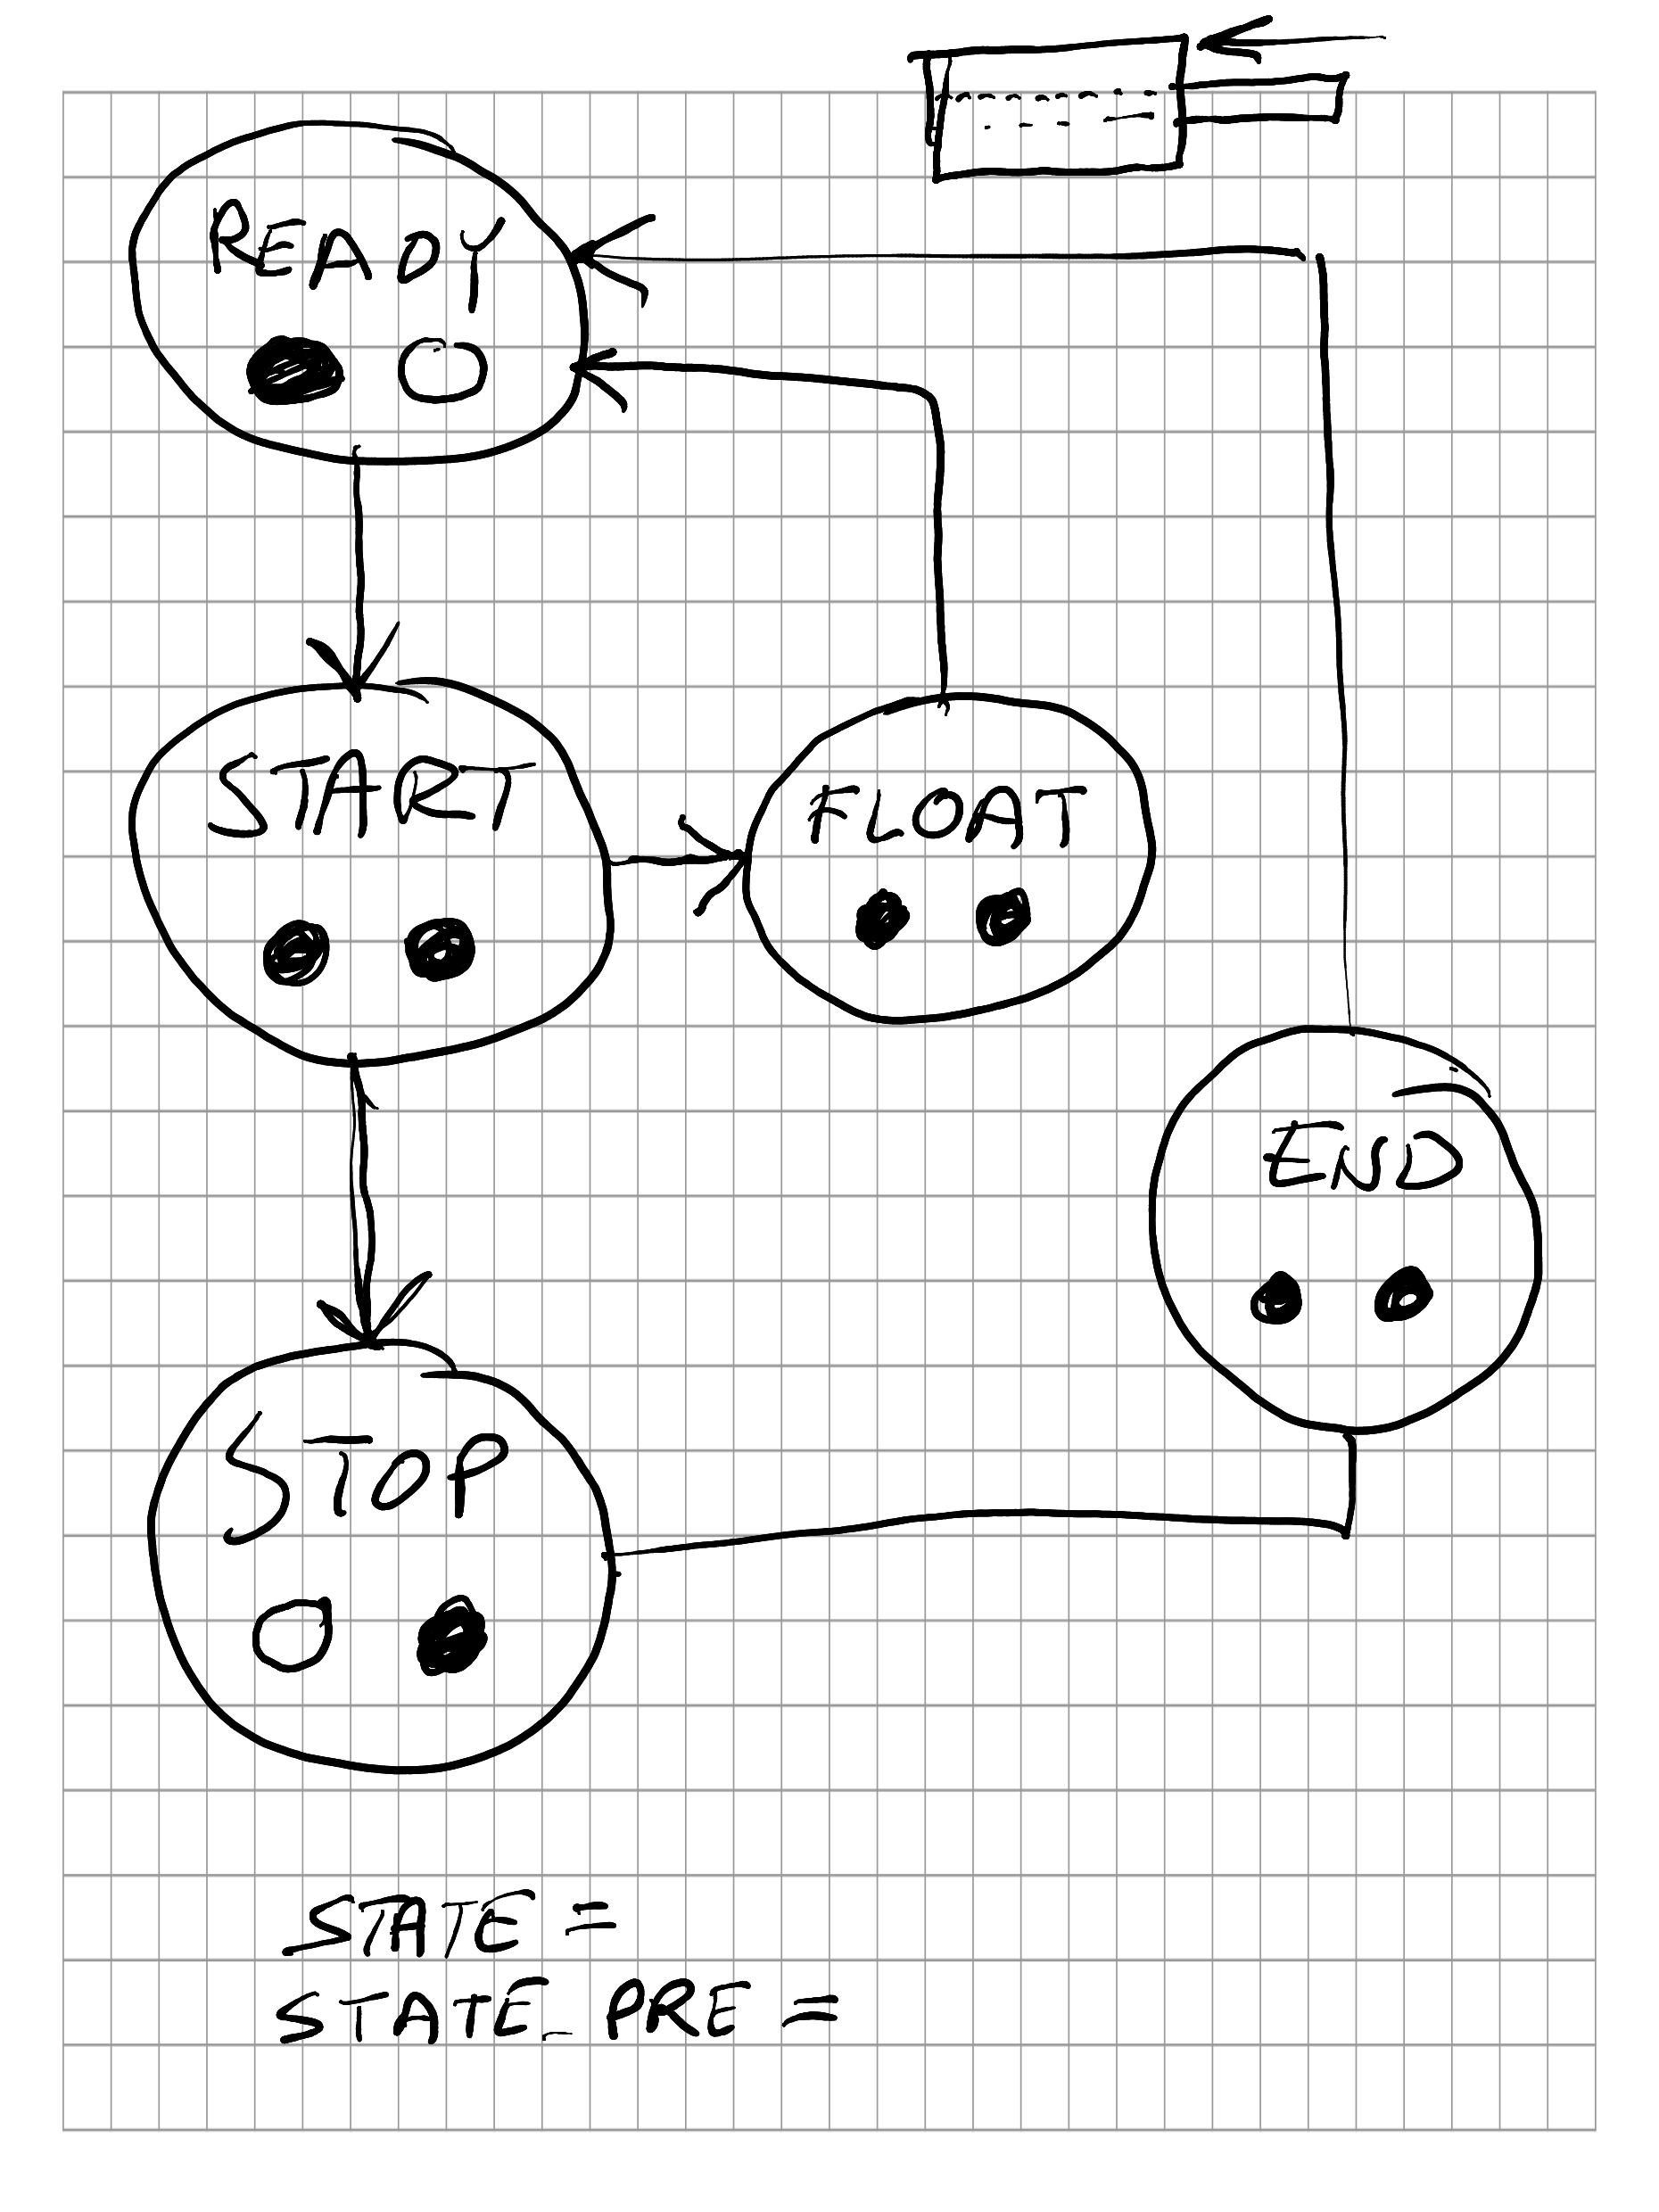 READY
START
FLOAT
END
STOP
STATE =
STATE_PRE =